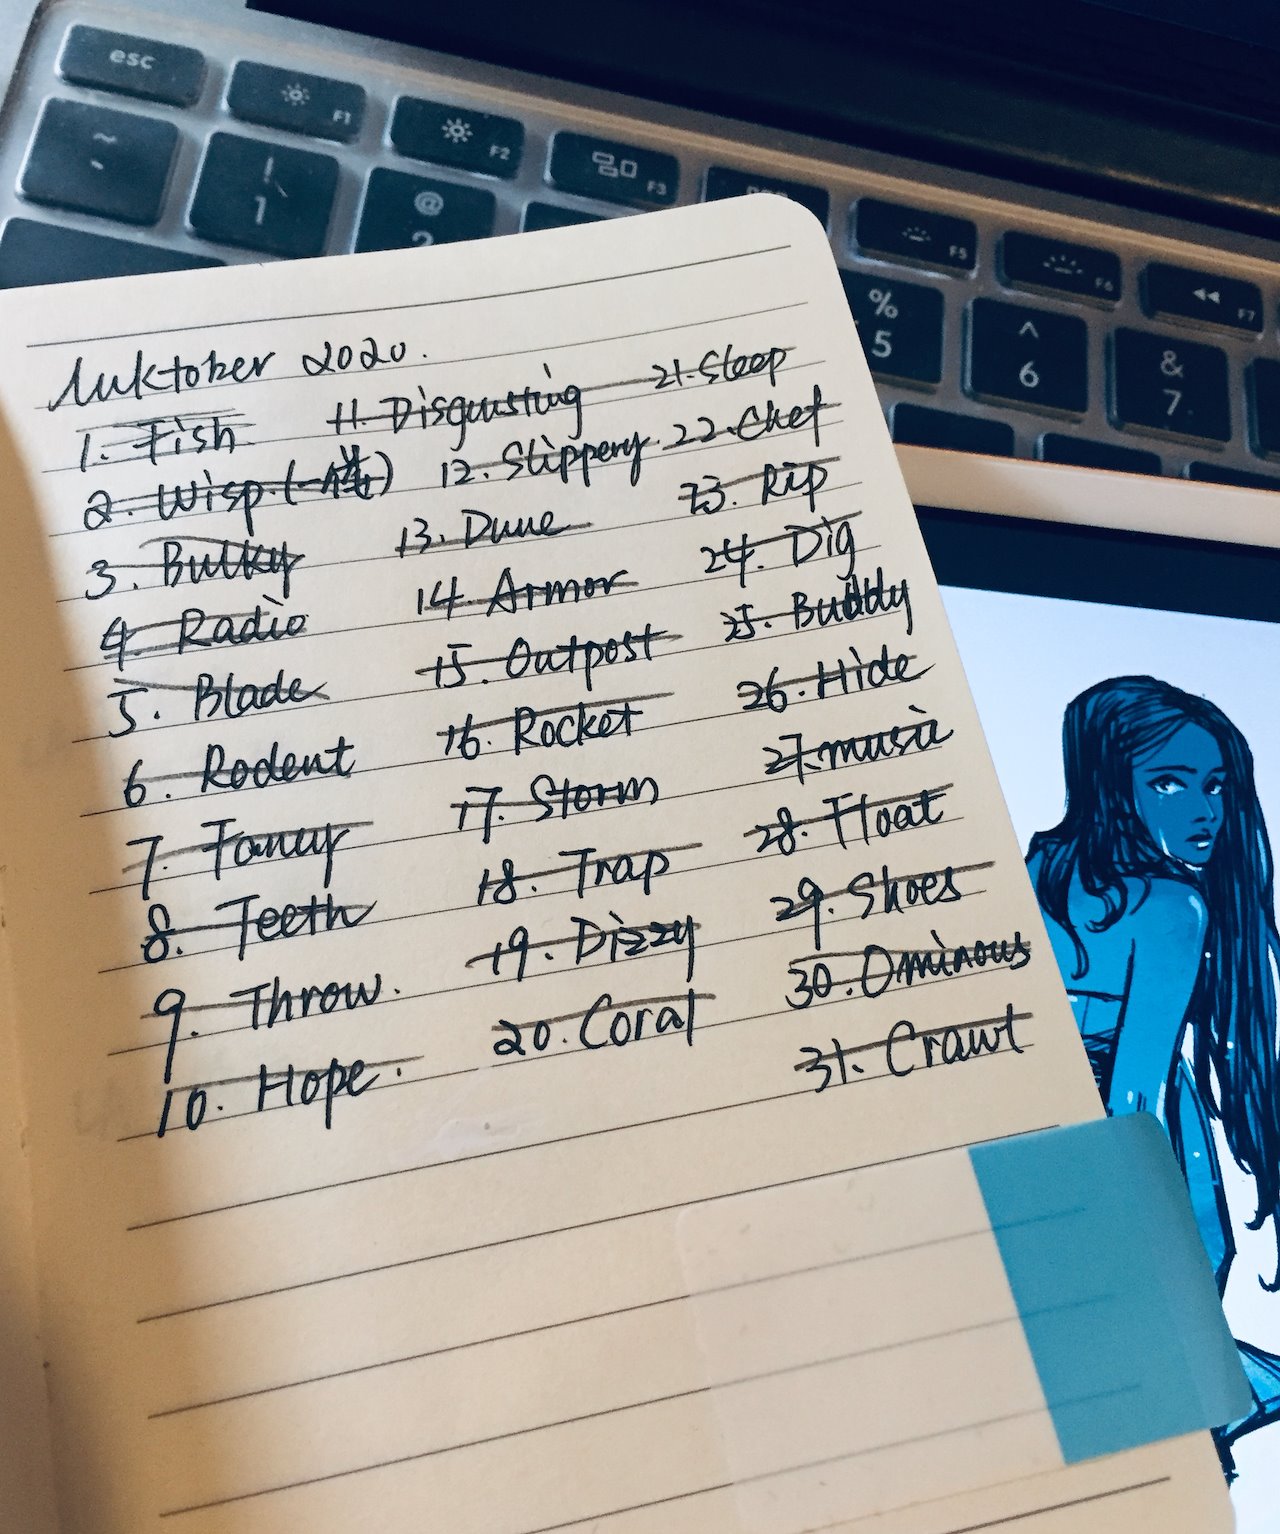 esc
F1
F2
F3
F5
F6
F7
~
`
!
1
@
2
%
5
^
6
&
7
Inktober 2020.
1. Fish
2. Wisp (一缕)
3. Bulky
4. Radio
5. Blade
6. Rodent
7. Fancy
8. Teeth
9. Throw.
10. Hope.
11. Disgusting
12. Slippery
13. Dune
14. Armor
15. Outpost
16. Rocket
17. Storm
18. Trap
19. Dizzy
20. Coral
21. Sleep
22. Chef
23. Rip
24. Dig
25. Buddy
26. Hide
27. music
28. Float
29. Shoes
30. Ominous
31. Crawl